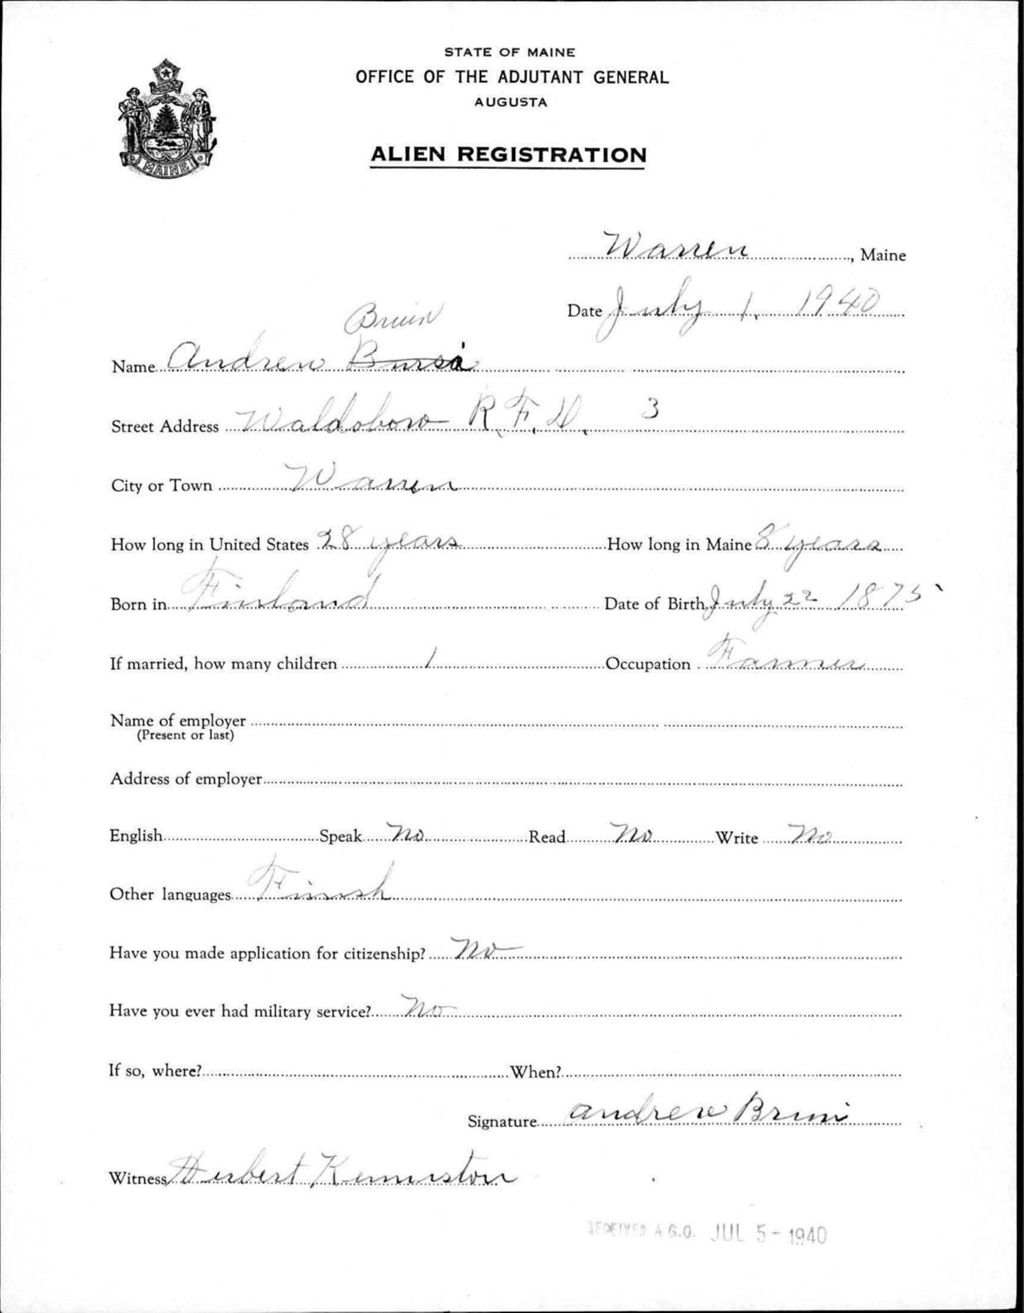 STATE OF MAINE
OFFICE OF THE ADJUTANT GENERAL
AUGUSTA
ALIEN REGISTRATION
MAINE
Warren, Maine
Date July 1, 1940
Bruin
Name Andrew
Street Address Waldoboro R.F.D. 3
City or Town Warren
How long in United States 28 years How long in Maine 8 years
Born in Finland Date of Birth July 22 1875
If married, how many children 1 Occupation Farmer
Name of employer
(Present or last)
Address of employer
English Speak No Read No Write No
Other languages Finish
Have you made application for citizenship? No
Have you ever had military service? No
If so, where? When?
Signature Andrew
Witness Herbert Kenniston
RECEIVED A.G.O. JUL 5 - 1940